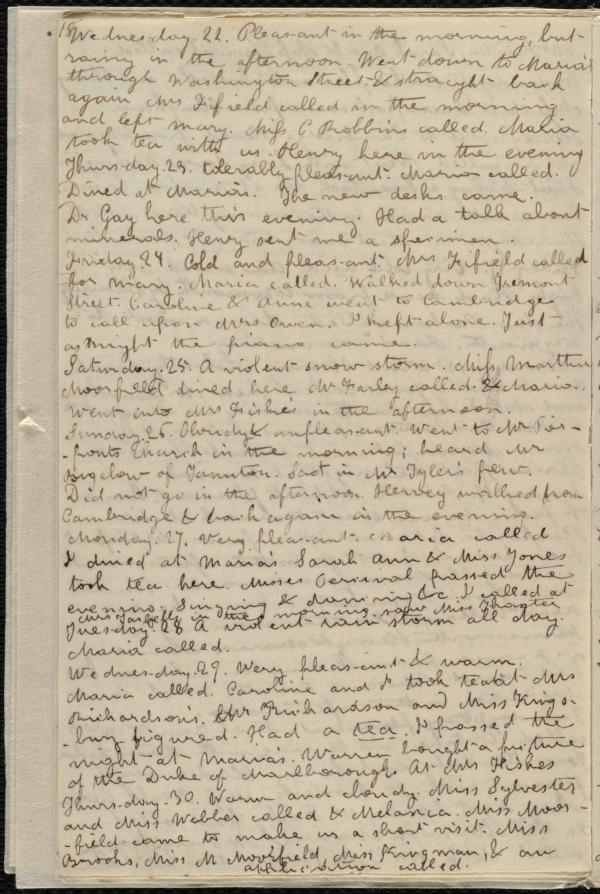 Wednesday. 22. Pleasant in the morning, but
rainy in the afternoon. Went down to Maria's
through Washington Street & straight back
again Mrs Fifield called in the morning
and left Mary. Miss C Robbins called. Maria
took tea with us. Henry here in the evening
Thursday. 23. tolerably pleasant. Maria called.
Dined at Maria's. The new desks came.
Dr Gay here this evening. Had a talk about
minerals. Henry sent me a specimen.
Friday. 24. Cold and pleasant. Mrs Fifield called
for Mary. Maria called. Walked down Tremont
Street. Caroline & Anne went to Cambridge
to call upon Mrs Owen. I kept alone. Just
as night the piano came.
Saturday. 25. A violent snow storm. Miss Martha
Moorfield dined here. Mr Farley called. & Maria.
Went into Mrs Fiske's in the afternoon.
Sunday. 26. Cloudy & unpleasant. Went to Mr
Church in the morning; heard Mr
Bigelow of Taunton. Sat in Mr Tyler's pew.
Did not go in the afternoon. Hervey walked from
Cambridge & back again in the evening.
Monday. 27. Very pleasant. Maria called
I dined at Maria's. Sarah Ann & Miss Jones
took tea here. Misses Percival passed the
evening. Singing & drawing &c. I called at
Mrs in the morning. saw Miss Thaxter
Tuesday. 28 A violent rain storm all day.
Maria called.
Wednesday. 29. Very pleasant & warm.
Maria called. Caroline and I took tea at Mrs
Richardson's. Mr Richardson and Miss Kings-
-bury figured. Had a tea. I passed the
night at Maria's. Warren bought a picture
of the Duke of Marlborough. At Mrs Fiskes
Thursday. 30. Warm and cloudy. Miss Sylvester
and Miss Webber called & Melancia. Miss Moor-
-field came to make us a short visit. Miss
Brooks, Miss M Moorfield, Miss Kingman, & an
called.